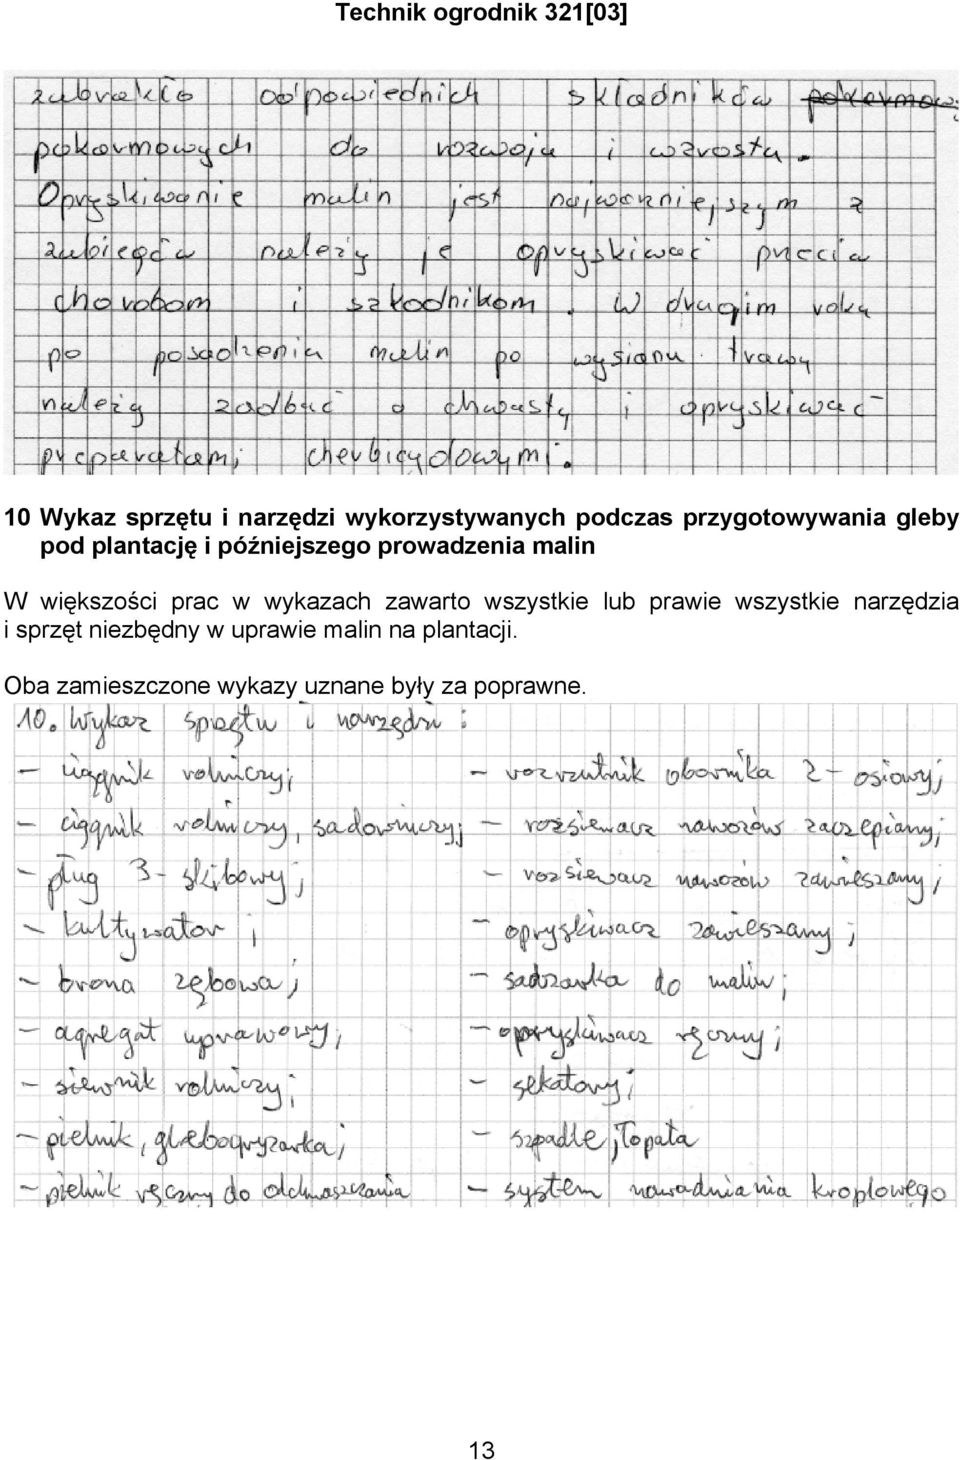 Technik ogrodnik 321[03]
zabrakło odpowiednich składników pokarmow
pokarmowych do rozwoju i wzrostu.
Opryskiwanie malin jest najważniejszym z
zabiegów należy je opryskiwać przeciw
chorobom i szkodnikom. W drugim roku
po posadzeniu malin po wysianu trawy
należy zadbać o chwasty i opryskiwać
preparatami cherbicydowymi.
10 Wykaz sprzętu i narzędzi wykorzystywanych podczas przygotowywania gleby
pod plantację i późniejszego prowadzenia malin
W większości prac w wykazach zawarto wszystkie lub prawie wszystkie narzędzia
i sprzęt niezbędny w uprawie malin na plantacji.
Oba zamieszczone wykazy uznane były za poprawne.
10. Wykaz sprzętu i narzędzi:
- ciągnik rolniczy;
- ciągnik rolniczy, sadowniczy;
- pług 3-skibowy;
- kultywator;
- brona zębowa;
- agregat uprawowy;
- siewnik rolniczy;
- pielnik, glebogryzarka;
- pielnik ręczny do odchwaszczania
- rozrzutnik obornika 2-osiowy;
- rozsiewacz nawozów zaczepiany;
- rozsiewacz nawozów zawieszany;
- opryskiwacz zawieszany;
- sadzarka do malin;
- opryskiwacz ręczny;
- sekatory;
- szpadle, łopata
- system nawadniania kroplowego
13